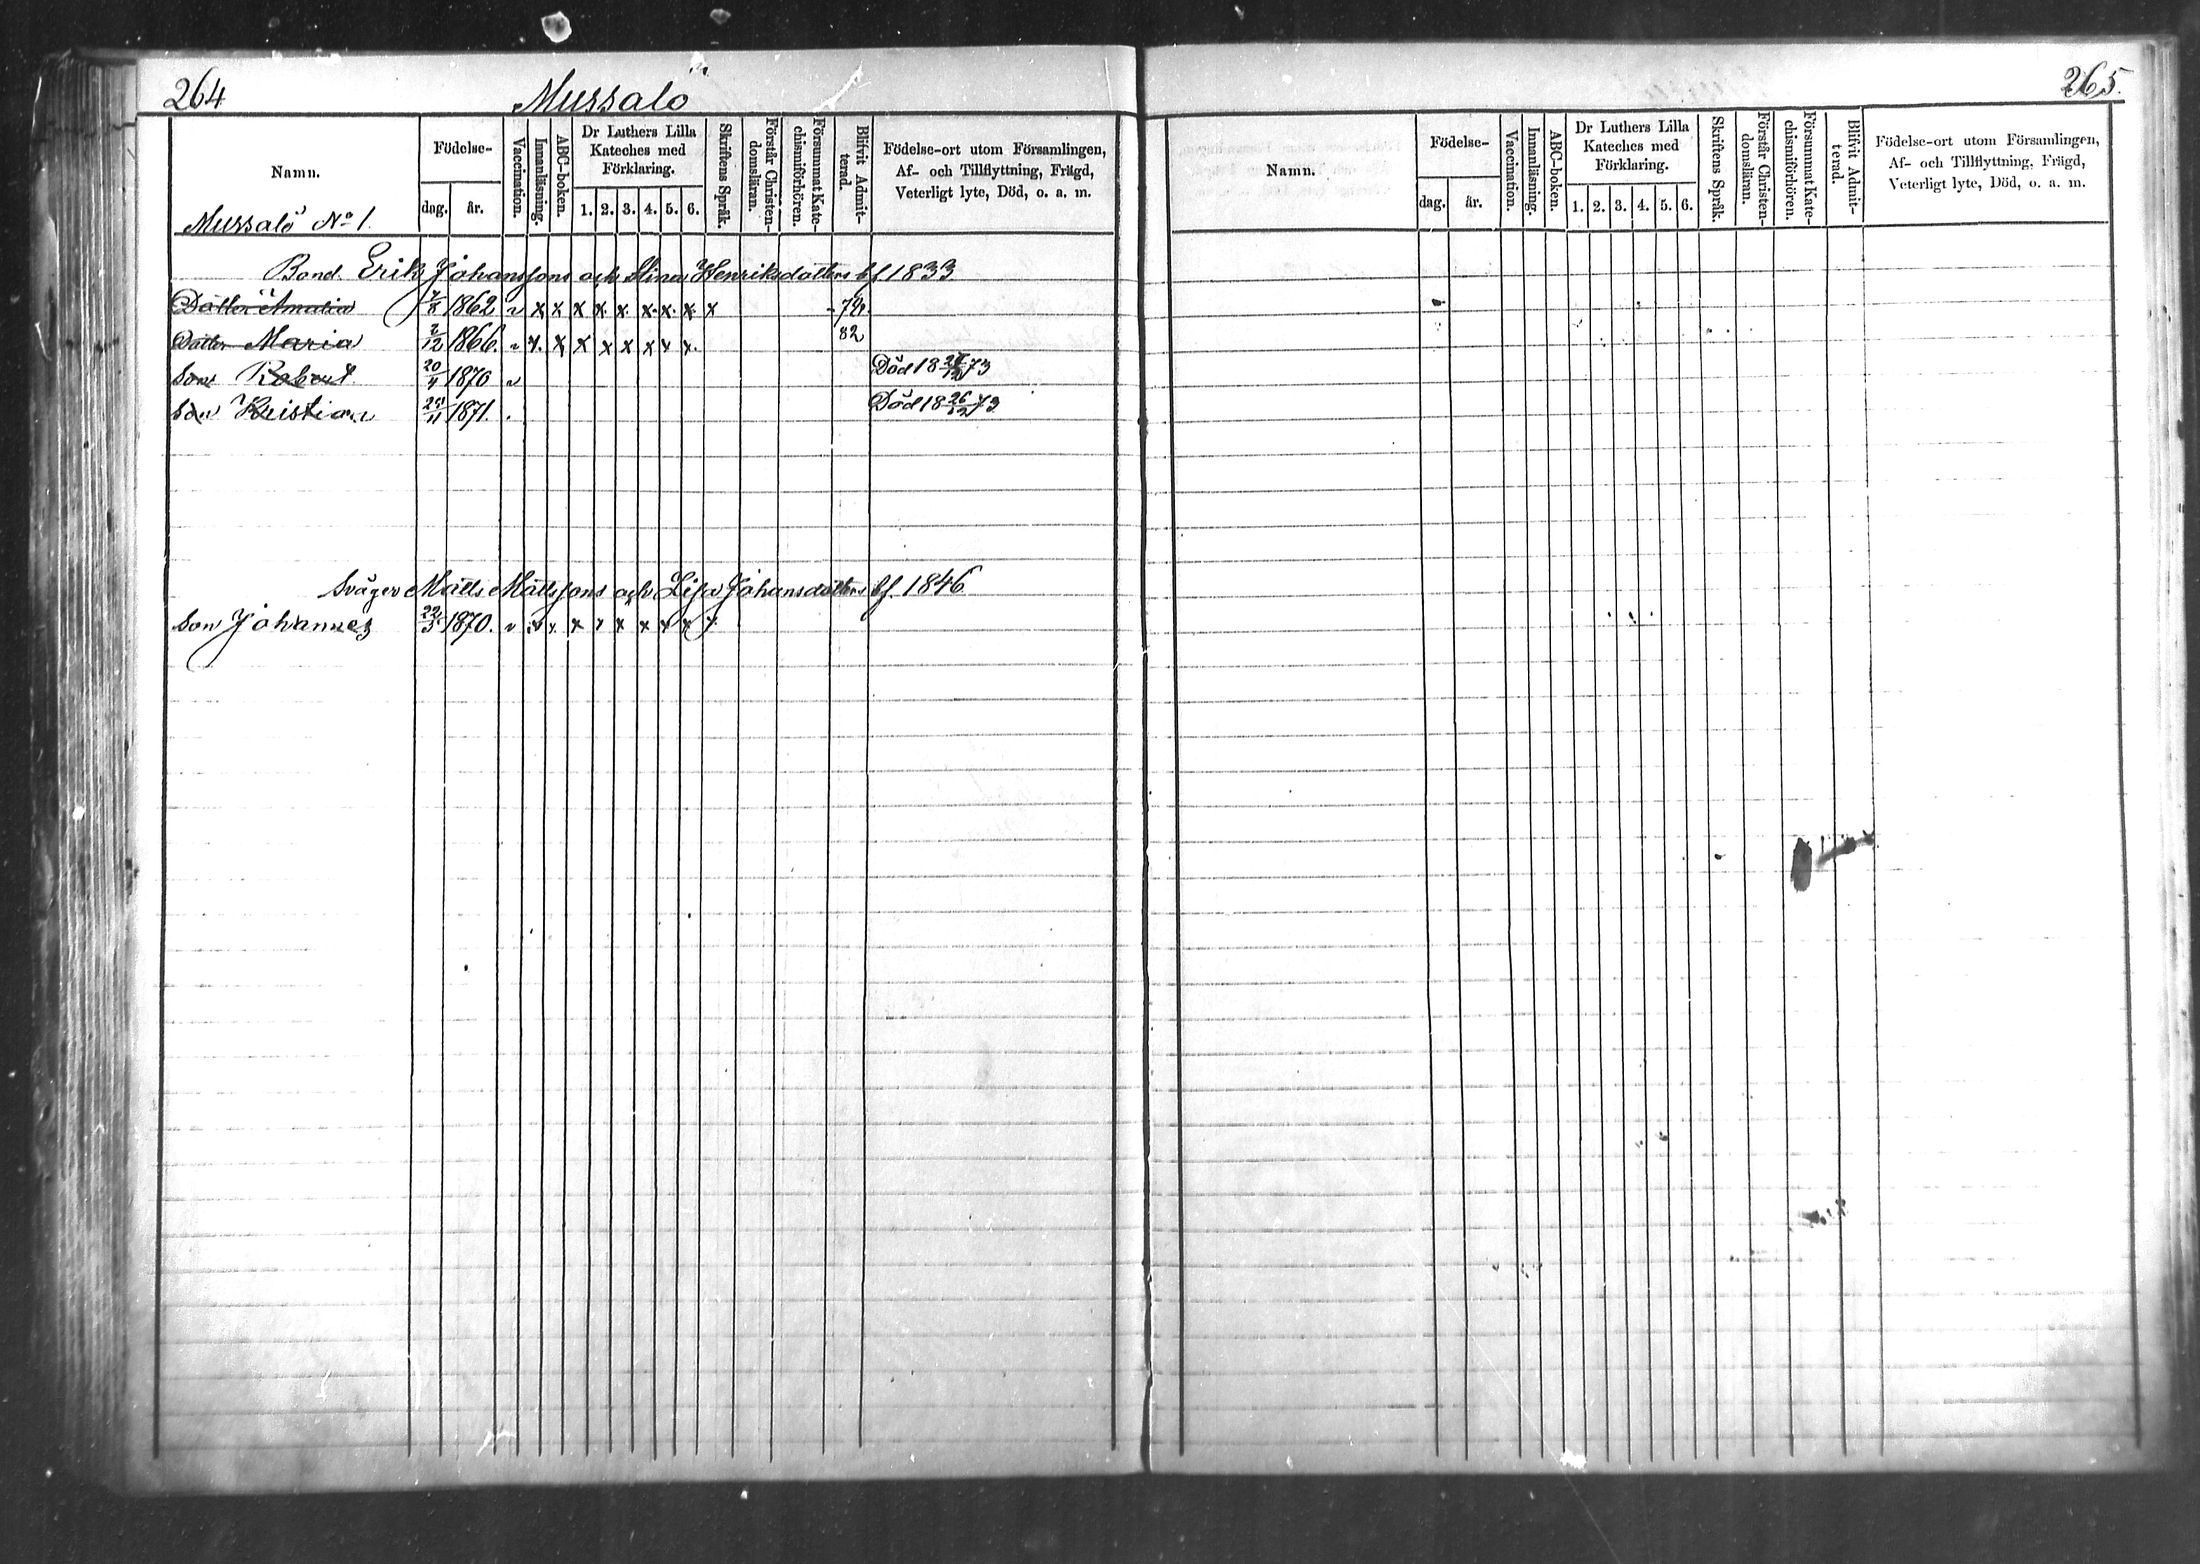 264
Mussalö
Namn.
Födelse-
dag.
år.
Vaccination.
Innanläsning.
ABC-boken.
Dr Luthers Lilla
Kateches med
Förklaring.
1. 2. 3. 4. 5. 6.
Skriftens Språk.
Förstår Christen-
domsläran.
Försummat Kate-
chismiförhören.
Blifvit Admit-
terad.
Födelse-ort utom Församlingen,
Af- och Tillflyttning, Frägd,
Veterligt lyte, Död, o. a. m.
Mussalö No 1.
Bond. Erik Johanssons och Stina Henriksdotters bf. 1833
Dotter Amalia 7/8 1862 v x x x x. x. x. x. x. x - 78.
Dotter Maria 2/12 1866. v x. x x x x x x x. 82
Son Robert 20/4 1870 v Död 18 /12 73
Son Kristian /11 1871. Död 18 26/12 73
Svåger Matts Mattssons och Lisa Johansdotters bf. 1846
Son Johannes 22/3 1870. v x x. x x x x x x x.
265.
Namn.
Födelse-
dag.
år.
Vaccination.
Innanläsning.
ABC-boken.
Dr Luthers Lilla
Kateches med
Förklaring.
1. 2. 3. 4. 5. 6.
Skriftens Språk.
Förstår Christen-
domsläran.
Försummat Kate-
chismiförhören.
Blifvit Admit-
terad.
Födelse-ort utom Församlingen,
Af- och Tillflyttning, Frägd,
Veterligt lyte, Död, o. a. m.